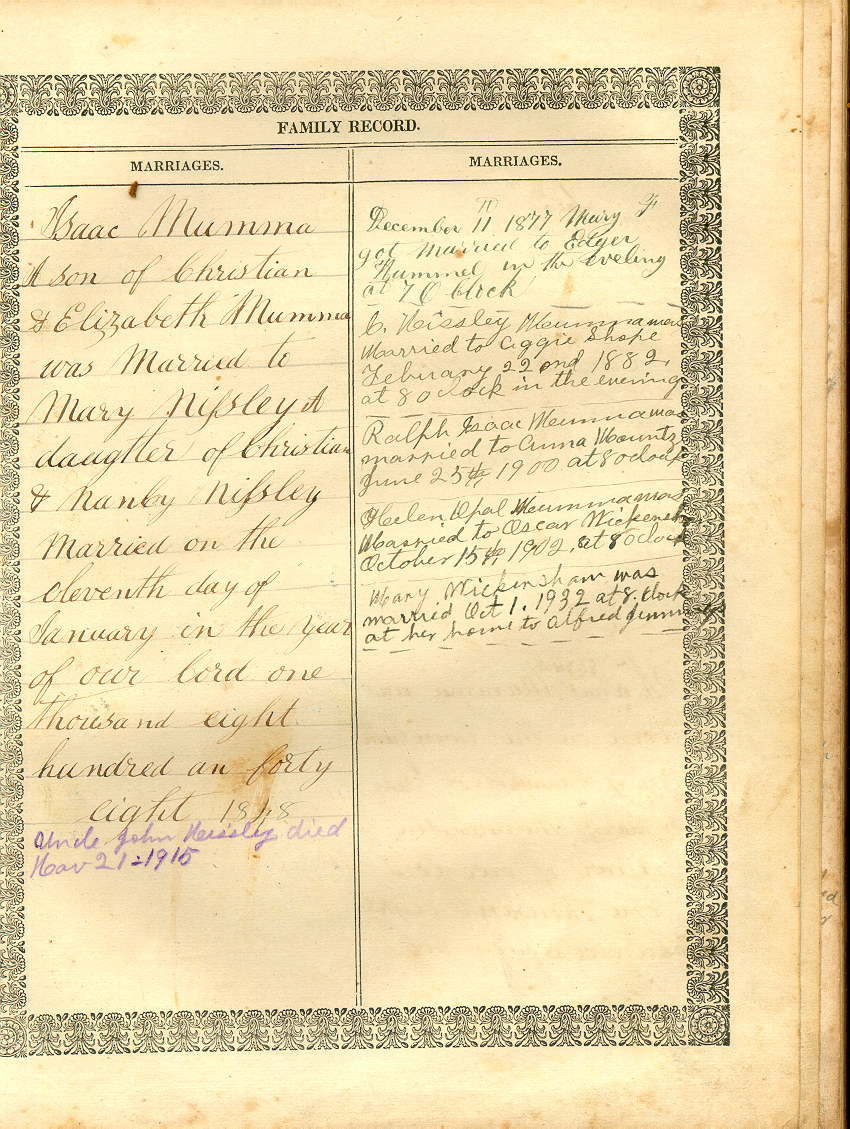 FAMILY RECORD.
MARRIAGES.
Isaac Mumma
A son of Christian
& Elizabeth Mumma
was Married to
Mary Nissley A
daughter of Christian
& Nanby Nissley
Married on the
eleventh day of
January in the year
of our lord one
thousand eight
hundred an forty
eight 1848
Uncle John Neissley died
Nov 21-1915
MARRIAGES.
December 11 1877 Mary F
got Married to Edger
Hummel in the eveling
at 7 O block
C. Neissley Mumma was
Married to Aggie Shope
Febuary 22 ond 1882,
at 8 oclock in the evening
Ralph Isaac Mumma was
married to Anna Mountz
June 25th, 1900 at 8 oclock
Helen Opal Mumma was
Married to Oscar
October 15th, 1902, at 8 oclock
Mary Wickinsham was
married Oct 1. 1932 at 8. clock
at her home to Alfred